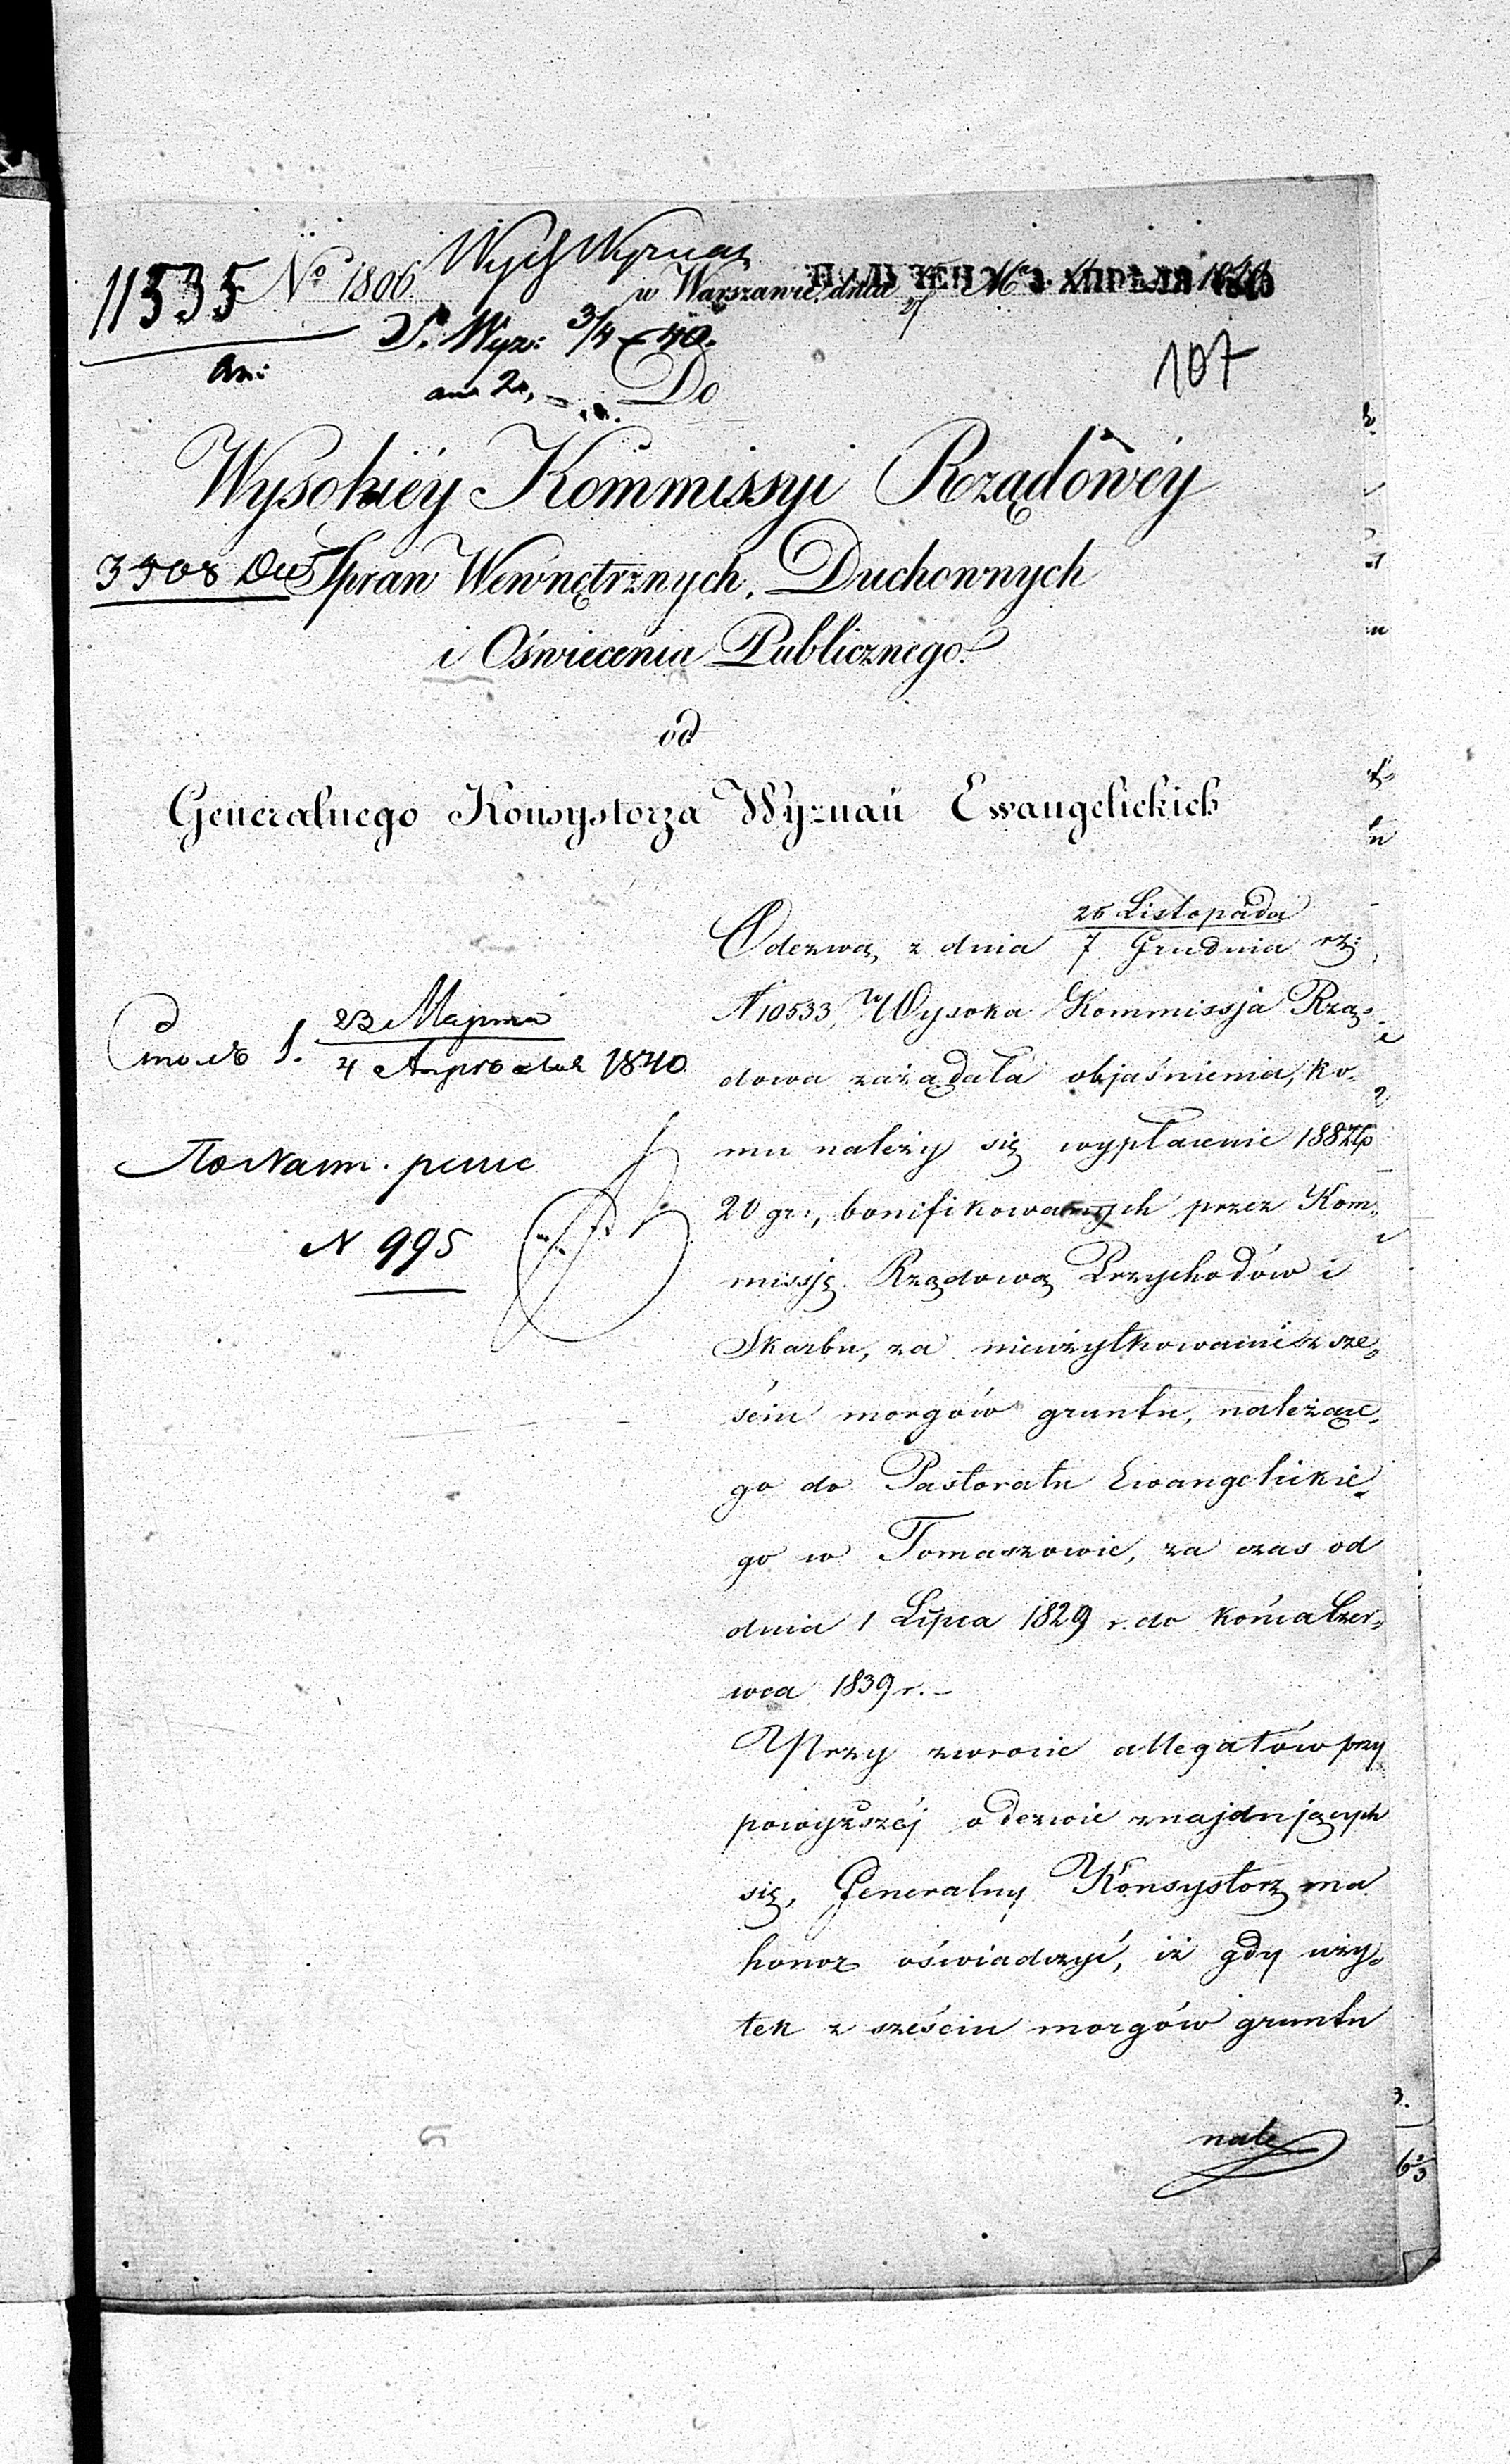 11535 No 1806 Wyzn
w Warszawie dnia 27 АПРѢЛЯ 1840
D. Wyzn: 3/4 - 40.
107
Do
Wysokiéy Kommissyi Rządowéy
Spraw Wewnętrznych, Duchownych
i Oświecenia Publicznego.
od
Generalnego Konsystorza Wyznań Ewangelickich
Столъ 1. 23 Марта
4 Апрѣля 1840
N 995
25 Listopada
Odezwą z dnia 7 Grudnia rz:
N 10533, Wysoka Kommissja Rzą-
dowa zażądała objaśnienia, ko-
mu należy się wypłacenie 188 Złp
20 gr:, bonifikowanych przez Kom-
missję Rządową Przychodów i
Skarbu, za nieużytkowanie z sze-
ściu morgów gruntu, należące-
go do Pastoratu Ewangelickie-
go w Tomaszowie, za czas od
dnia 1 Lipca 1829 r. do końca Czer-
wca 1839 r. -
Przy zwrocie allegatów przy
powyższéj odezwie znajdujących
się, Generalny Konsystorz ma
honor oświadczyć, iż gdy uży-
tek z sześciu morgów gruntu
nale